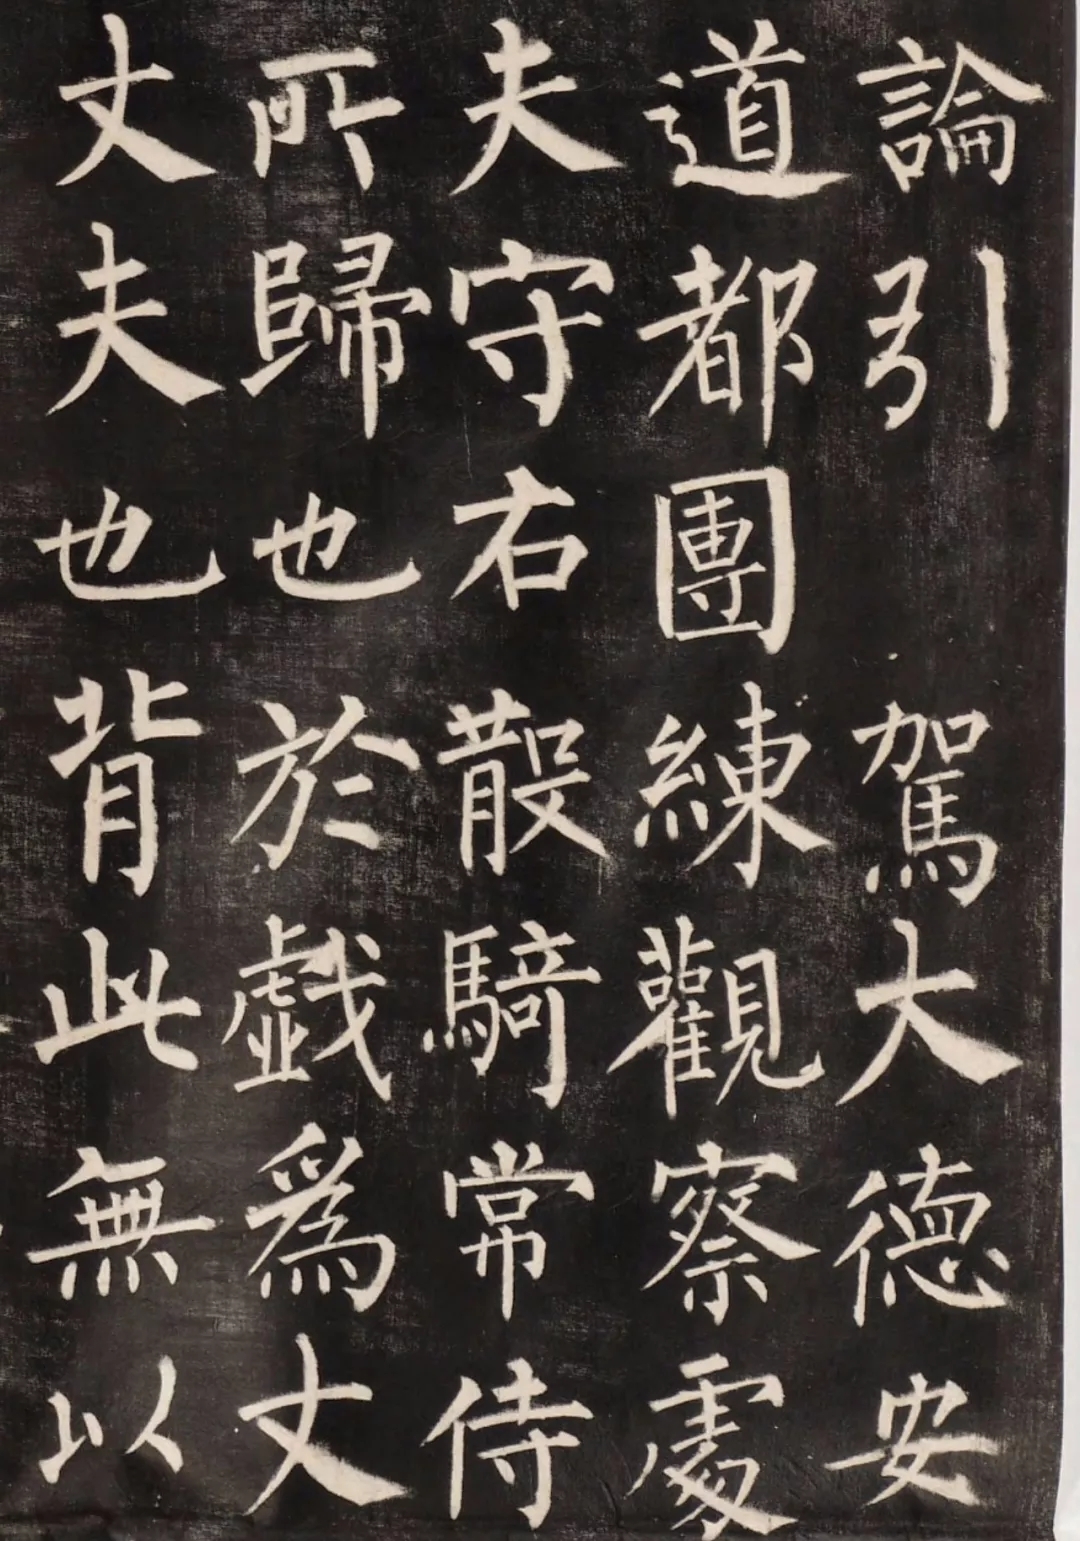 論引駕大德安
道都團練觀察處
夫守右散騎常侍
所歸也於戲爲丈
丈夫也背此無以